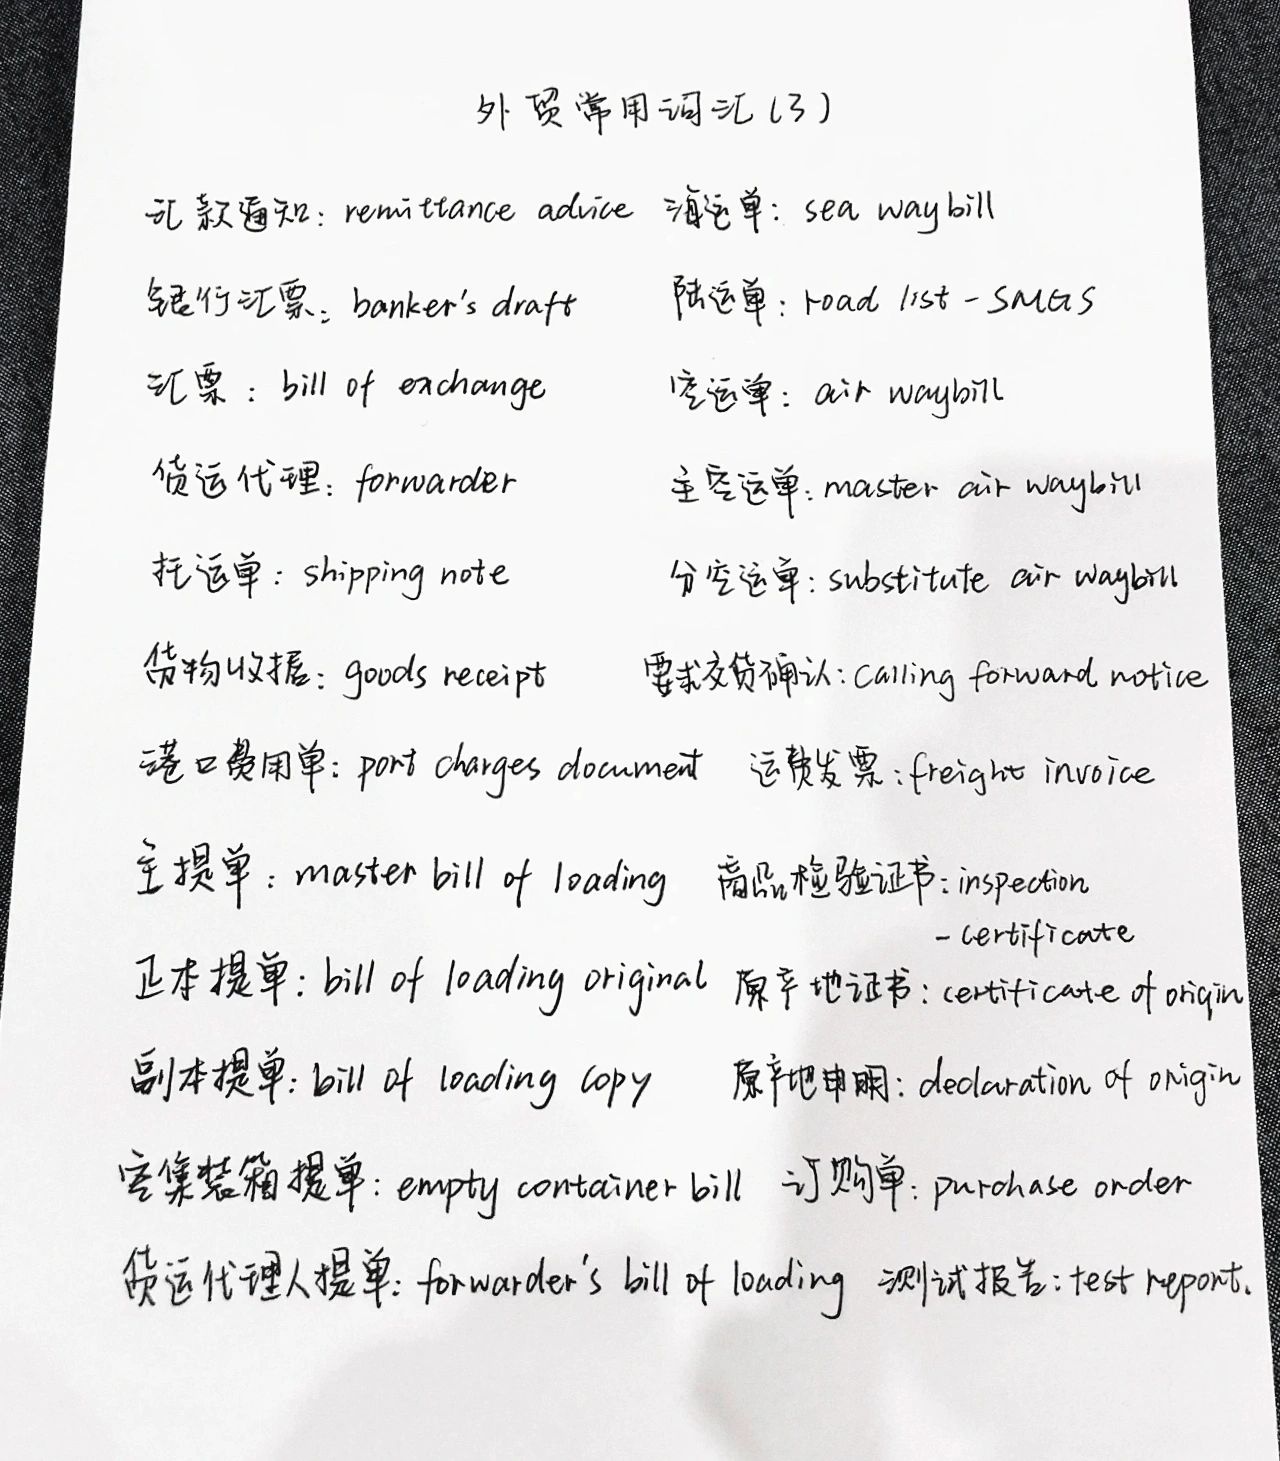 外贸常用词汇(3)
汇款通知: remittance advice 海运单: sea waybill
银行汇票: banker's draft 陆运单: road list - SMGS
汇票: bill of exchange 空运单: air waybill
货运代理: forwarder 主空运单: master air waybill
托运单: shipping note 分空运单: substitute air waybill
货物收据: goods receipt 要求交货确认: calling forward notice
港口费用单: port charges document 运费发票: freight invoice
主提单: master bill of loading 商品检验证书: inspection
- certificate
正本提单: bill of loading original 原产地证书: certificate of origin
副本提单: bill of loading copy 原产地申明: declaration of origin
空集装箱提单: empty container bill 订购单: purchase order
货运代理人提单: forwarder's bill of loading 测试报告: test report.